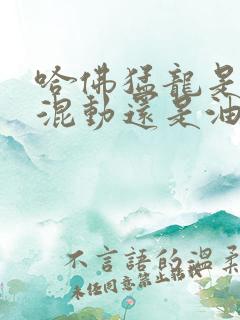 哈佛猛龍是
混動還是油
不言語的温柔
未任同意禁止转载